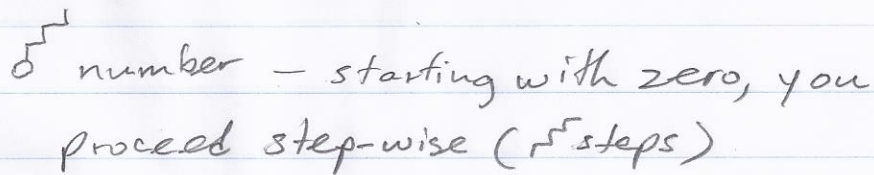 number – starting with zero, you
proceed step-wise ( steps)